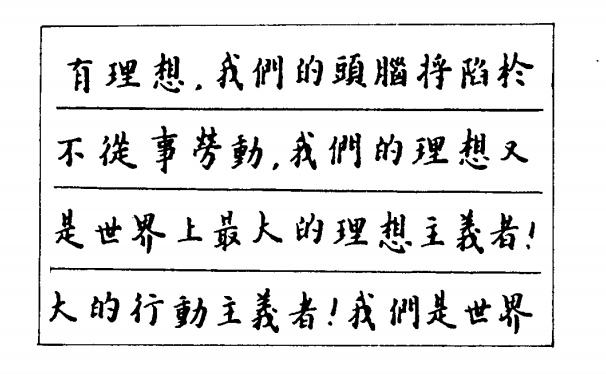 有理想,我們的頭腦将陷於
不從事勞動,我們的理想又
是世界上最大的理想主義者!
大的行動主義者!我們是世界